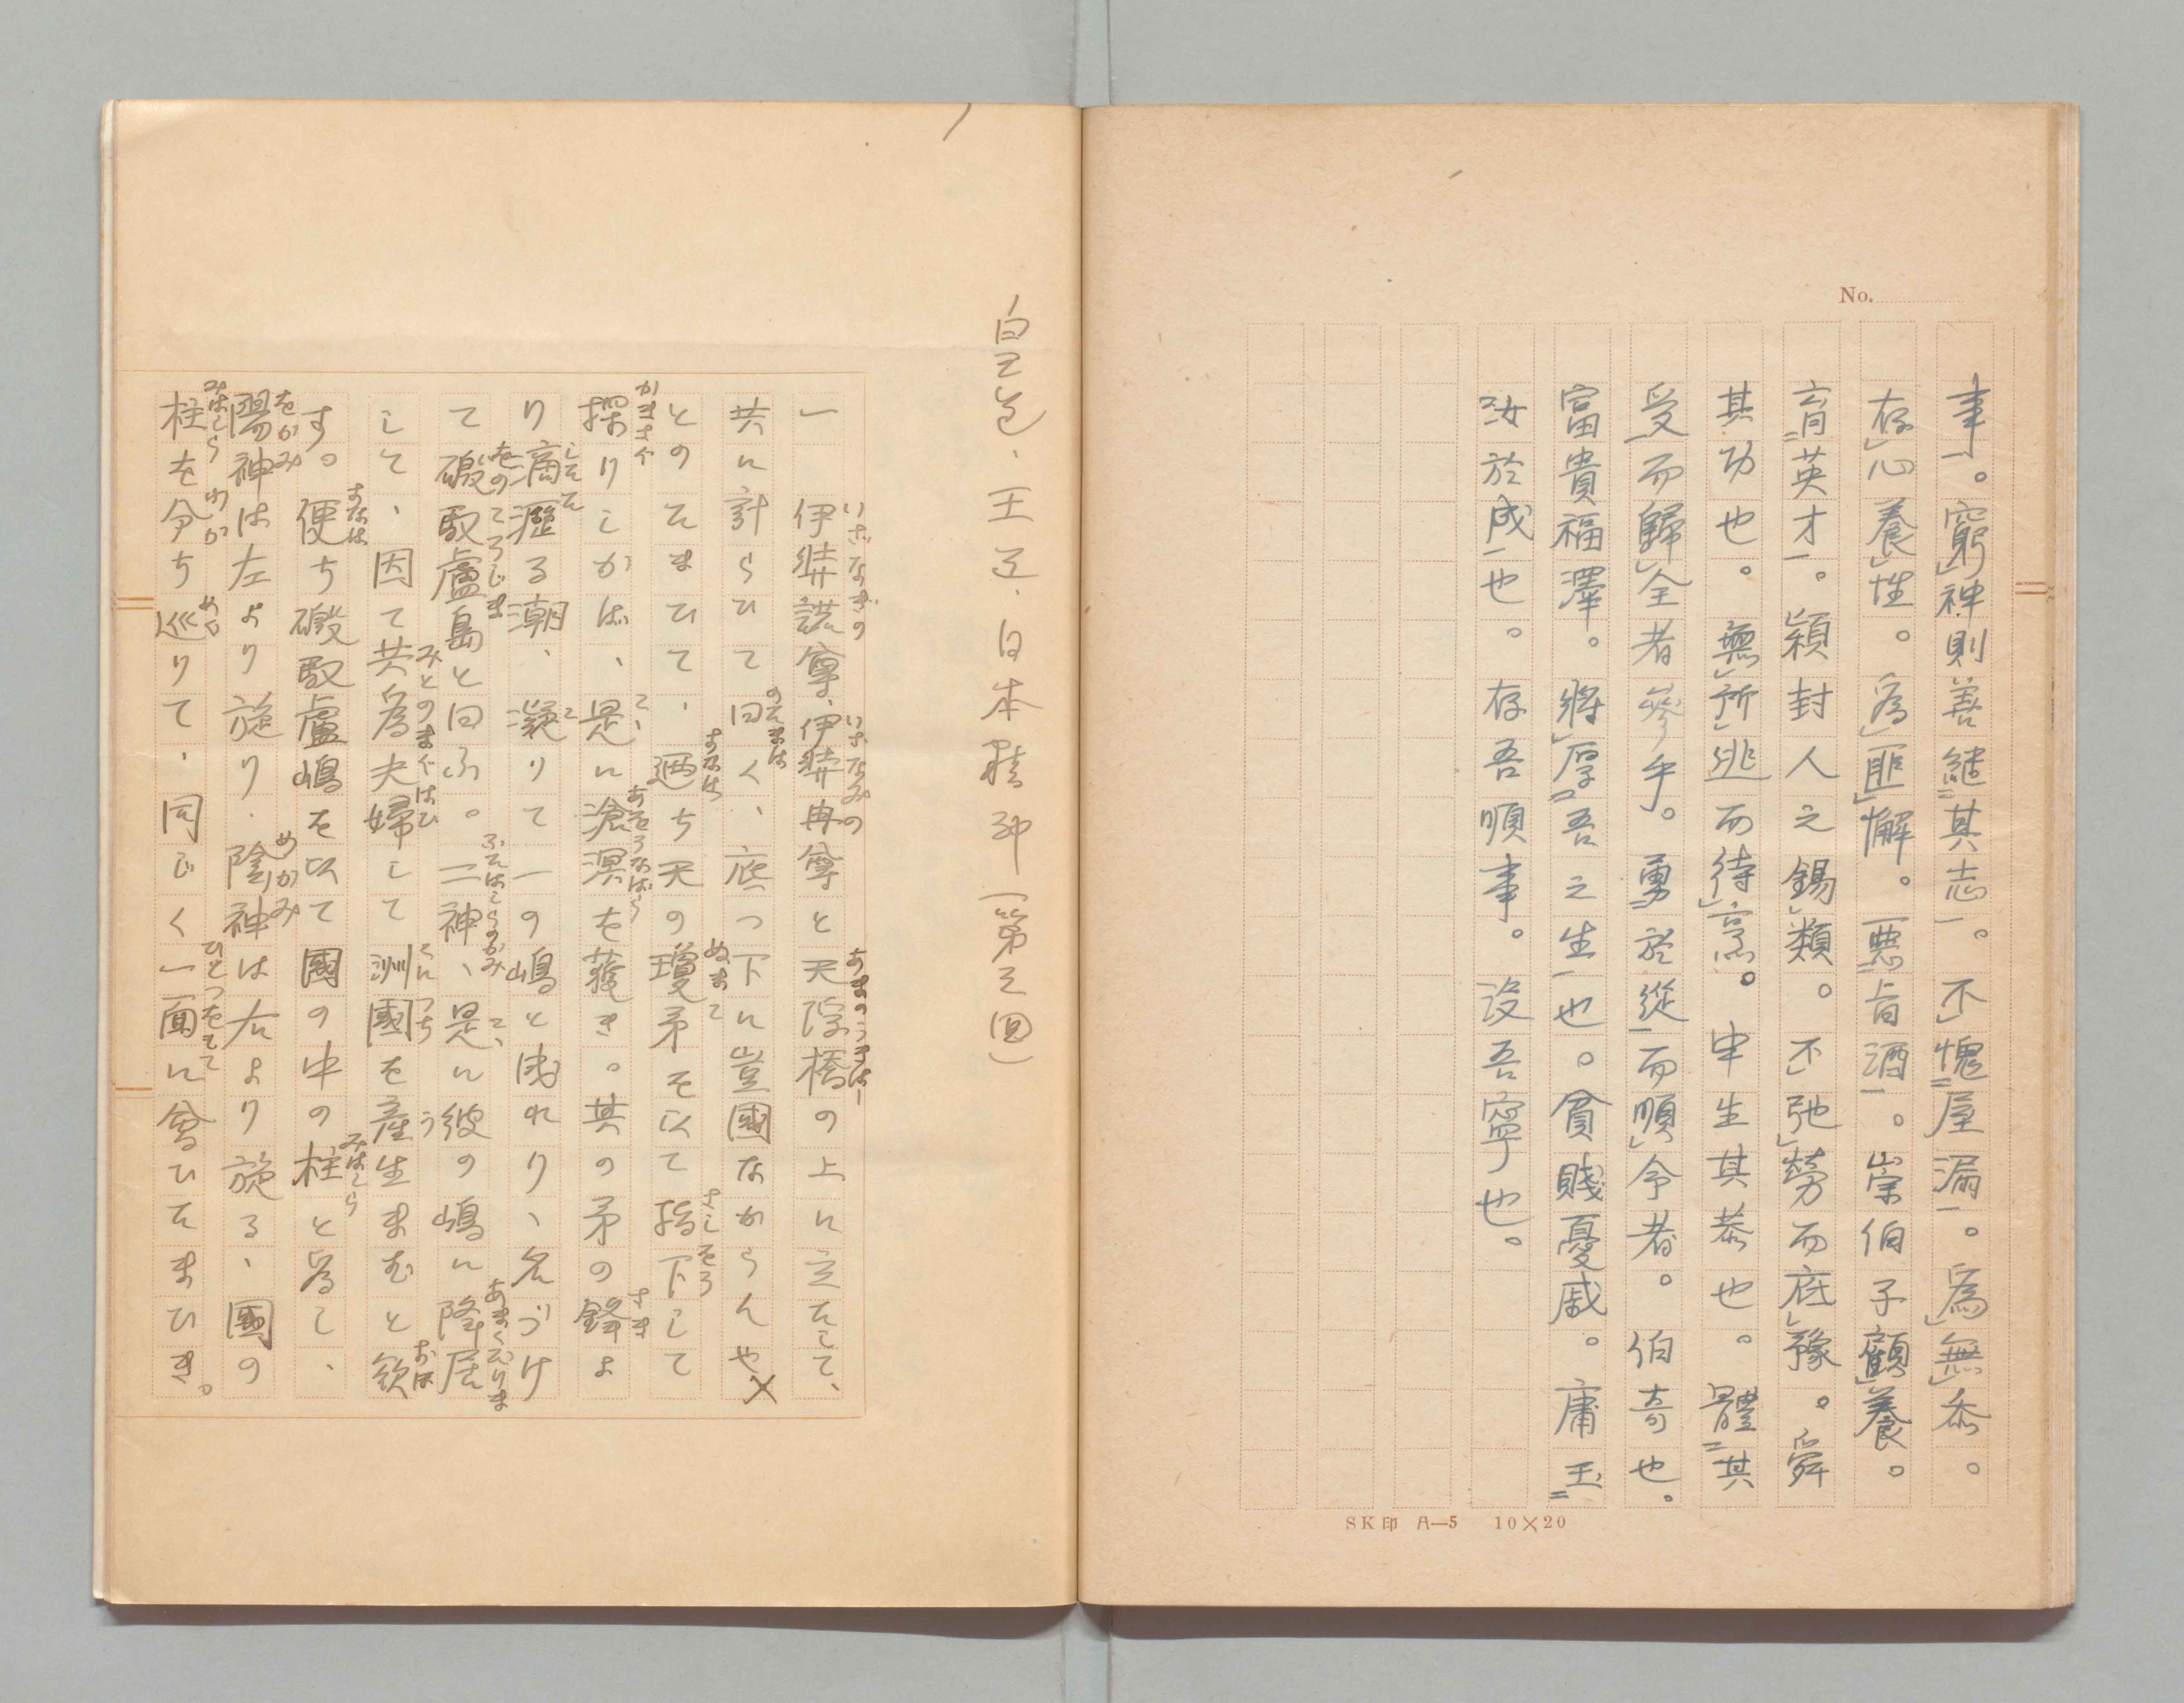 No.
事一。窮レ神則善継二其志一。不レ愧二屋漏一。為レ無レ忝。
存レ心養レ性。為レ匪レ懈。悪二旨酒一。崇伯子顧レ養。
育二英才一。頴封人之錫レ類。不レ弛レ勞而底レ豫。舜
其功也。無レ所レ逃而待レ烹。申生其恭也。體二其
受一而歸レ全者參乎。勇二於從一而順レ令者。伯奇也。
富貴福澤。將レ厚二吾之生一也。貧賤憂戚。庸玉二
汝於成一也。存吾順事。沒吾寧也。
SK印 A—5 10×20
皇道、王道、日本精神(第三回)
一 伊弉諾尊、伊弉冉尊と天浮橋の上に立たして、
共に計らひて曰く、底つ下に豈國なからんや
とのたまひて、廼ち天の瓊矛を以て指下して
探りしかば、是に滄溟を獲き。其の矛の鋒よ
り滴瀝る潮、凝りて一の嶋と成れり、名づけ
て磤馭盧島と曰ふ。二神、是に彼の嶋に降居
して、因て共為夫婦して洲國を産生まむと欲
す。便ち磤馭盧嶋を以て國の中の柱と為し、
陽神は左より旋り、陰神は右より旋る、國の
柱を分ち巡りて、同じく一面に會ひたまひき。